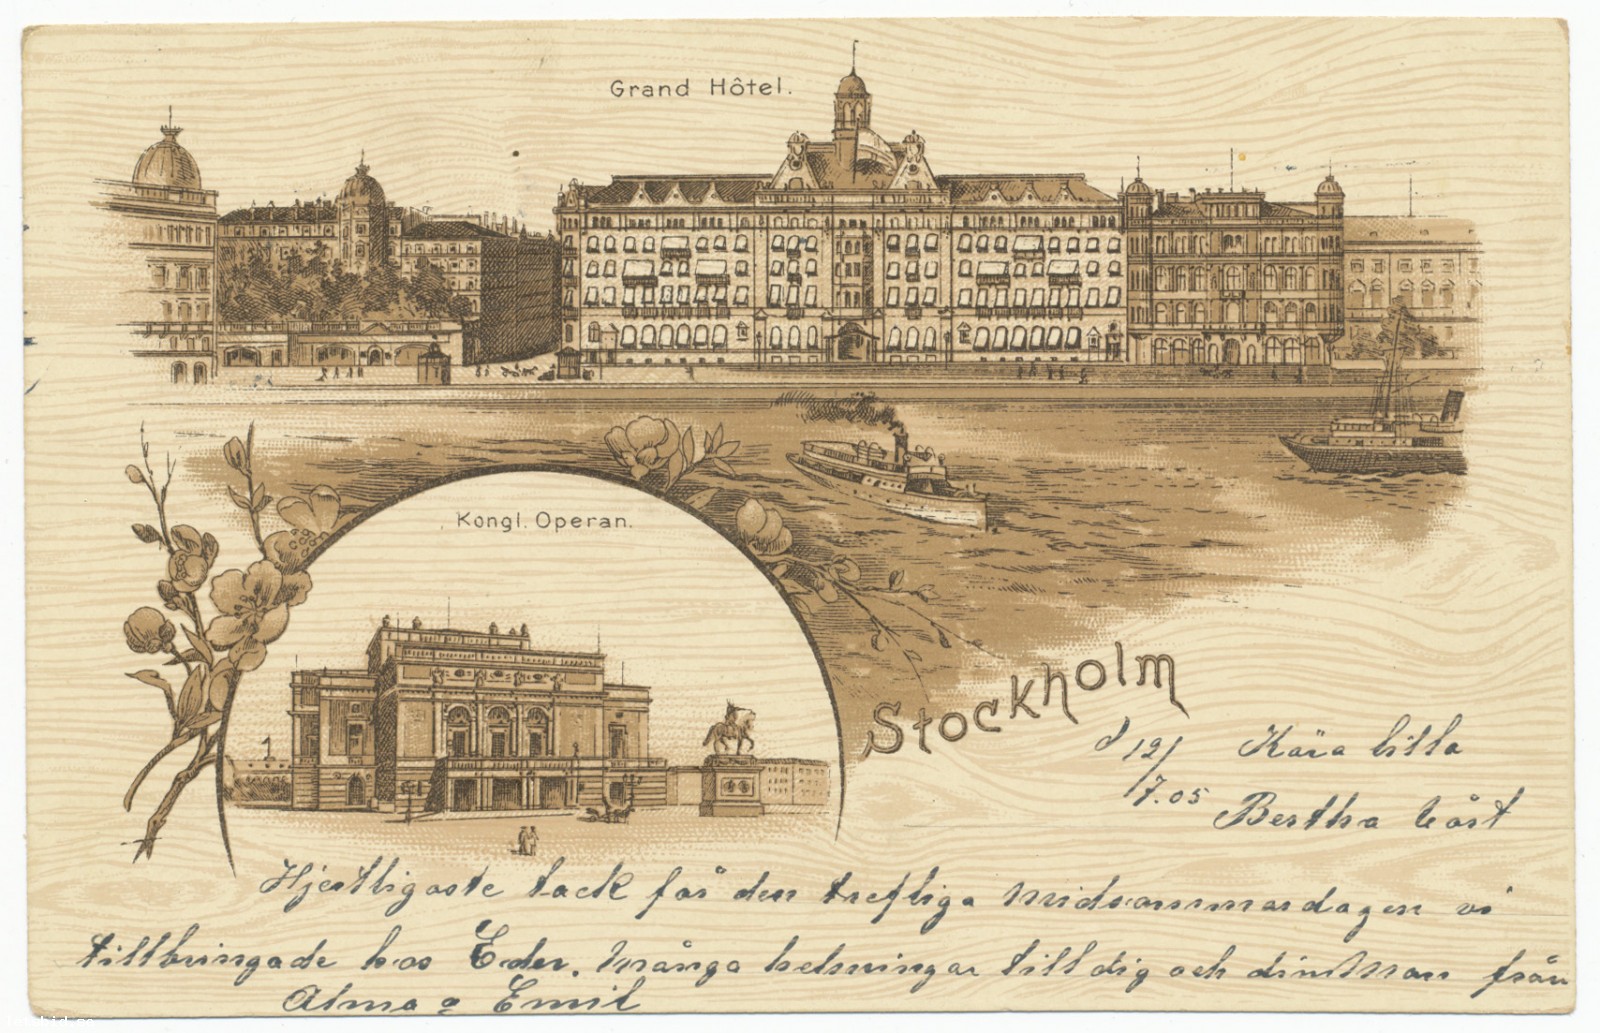 Grand Hôtel.
Kongl. Operan.
Stockholm
d 12/7.05 Kära lilla
Bertha
Hjertligaste tack för den trefliga midsommardagen vi
tillbringade hos Eder. Många helsningar till dig och din från
Alma o Emil